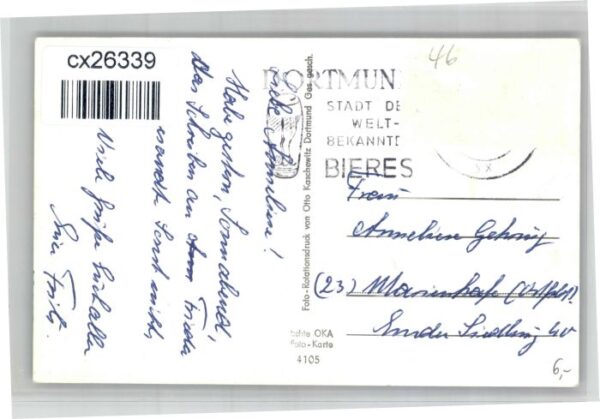 cx26339
46
DORTMUN
STADT DE
WELT-
BEKANNTE
BIERES
Liebe Anneliese!
Habe gestern, Sonnabend,
das Schreiben an Frieda
Sonst nichts
Viele Grüße Euch allen
Fritz.
Foto-Rotationsdruck von Otto Kaschewitz Dortmund Ges. gesch.
chte OKA
Foto-Karte
4105
Frau
Anneliese Gehring
(23) Marienhafe (Ostfrsld)
Emder Siedlung
6,-